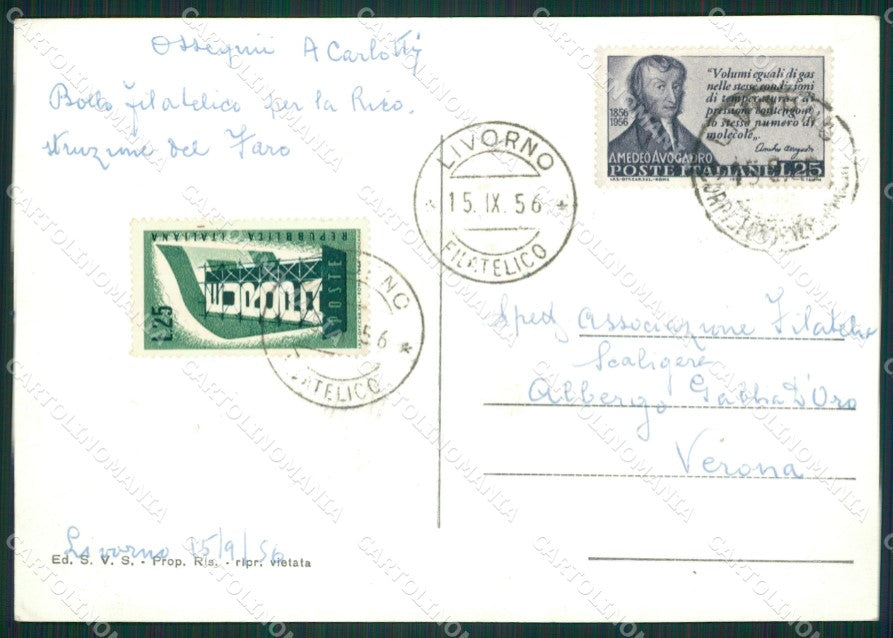 Ossequi A Carlotti
Bollo filatelico per la Rico.
struzione del Faro
"Volumi eguali di gas
nelle stesse condizioni
di temperatura e di
pressione contengono
lo stesso numero di
molecole„
1856
1956
AMEDEO AVOGADRO
POSTE ITALIANE L.25
LIVORNO
15. IX. 56
FILATELICO
REPUBBLICA ITALIANA
POSTE
EUROPA
L.25
56
FILATELICO
Sped Associazione Filatelica
Scaligera
Albergo Gabbia D'Oro
Verona
Livorno 15/9/56
Ed. S. V. S. - Prop. Ris. - ripr. vietata
CARTOLINOMANIA